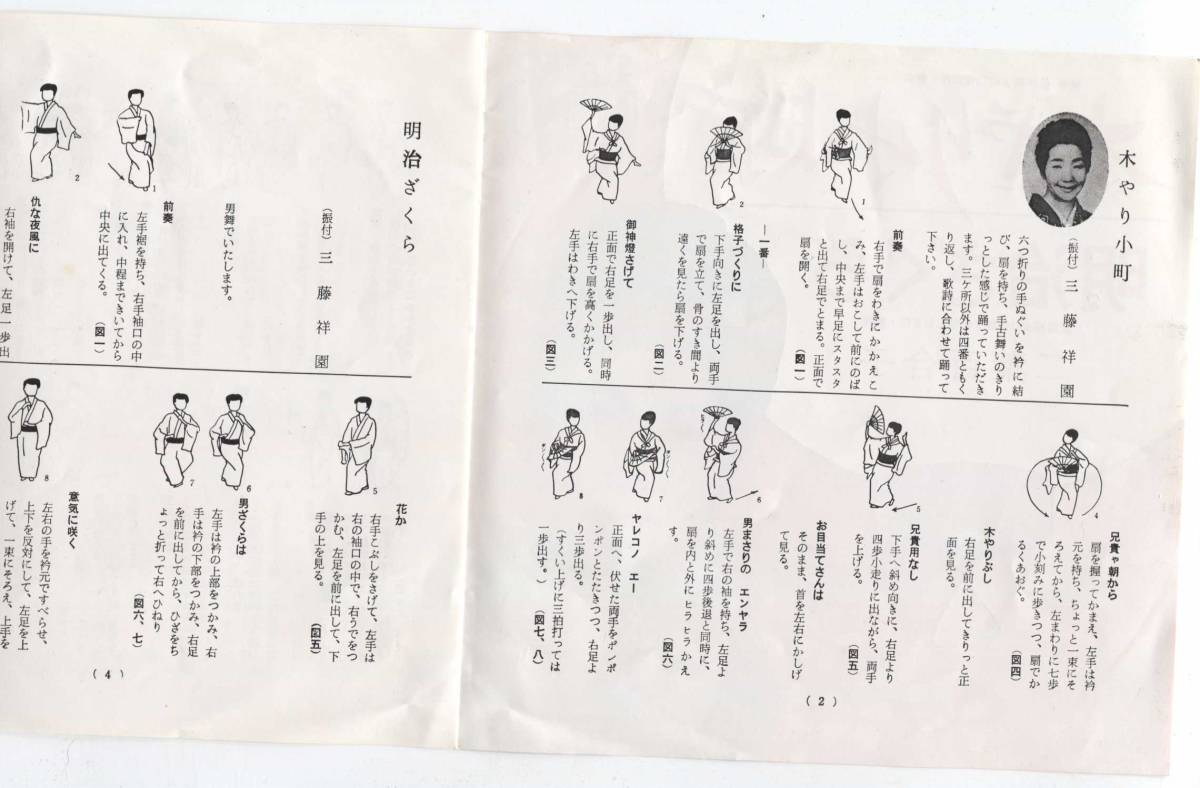 木やり小町
（振付）三藤祥園
六つ折りの手ぬぐいを衿に結
び、扇を持ち、手古舞いのきり
っとした感じで踊っていただき
ます。三ケ所以外は四番ともく
り返し、歌詩に合わせて踊って
下さい。
1
前奏
右手で扇をわきにかかえこ
み、左手はおこして前にのば
し、中央まで早足にスタスタ
と出て右足でとまる。正面で
扇を開く。
（図一）
―一番―
2
格子づくりに
下手向きに左足を出し、両手
で扇を立て、骨のすき間より
遠くを見たら扇を下げる。
（図二）
3
御神燈さげて
正面で右足を一歩出し、同時
に右手で扇を高くかかげる。
左手はわきへ下げる。
（図三）
4
兄貴ゃ朝から
扇を握ってかまえ、左手は衿
元を持ち、ちょっと一束にそ
ろえてから、左まわりに七歩
で小刻みに歩きつつ、扇でか
るくあおぐ。
（図四）
木やりぶし
右足を前に出してきりっと正
面を見る。
5
兄貴用なし
下手へ斜め向きに、右足より
四歩小走りに出ながら、両手
を上げる。
（図五）
お目当てさんは
そのまま、首を左右にかしげ
て見る。
6
男まさりの エンヤラ
左手で右の袖を持ち、左足よ
り斜めに四歩後退と同時に、
扇を内と外に ヒラヒラかえ
す。
（図六）
7
8
ヤレコノ エー
正面へ、伏せた両手をポンポ
ンポンとたたきつつ、右足よ
り三歩出る。
（すくい上げに三拍打っては
一歩出す。）
（図七、八）
（2）
明治ざくら
（振付）三藤祥園
男舞でいたします。
1
前奏
左手裾を持ち、右手袖口の中
に入れ、中程まできいてから
中央に出てくる。
（図一）
2
仇な夜風に
右袖を開けて、左足一歩出
5
花か
右手こぶしをさげて、左手は
右の袖口の中で、右うでをつ
かむ、左足を前に出して、下
手の上を見る。
（図五）
6
7
男ざくらは
左手は衿の上部をつかみ、右
手は衿の下部をつかみ、右足
を前に出してから、ひざをち
ょっと折って右へひねり
（図六、七）
8
意気に咲く
左右の手を衿元ですべらせ、
上下を反対にして、左足を上
げて、一束にそろえ、上手を
（4）